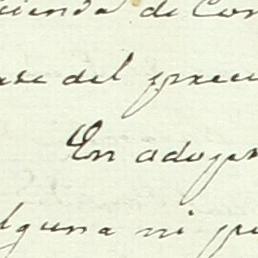 cienda de Con
ase del prece
En adoper
lguna ni pu